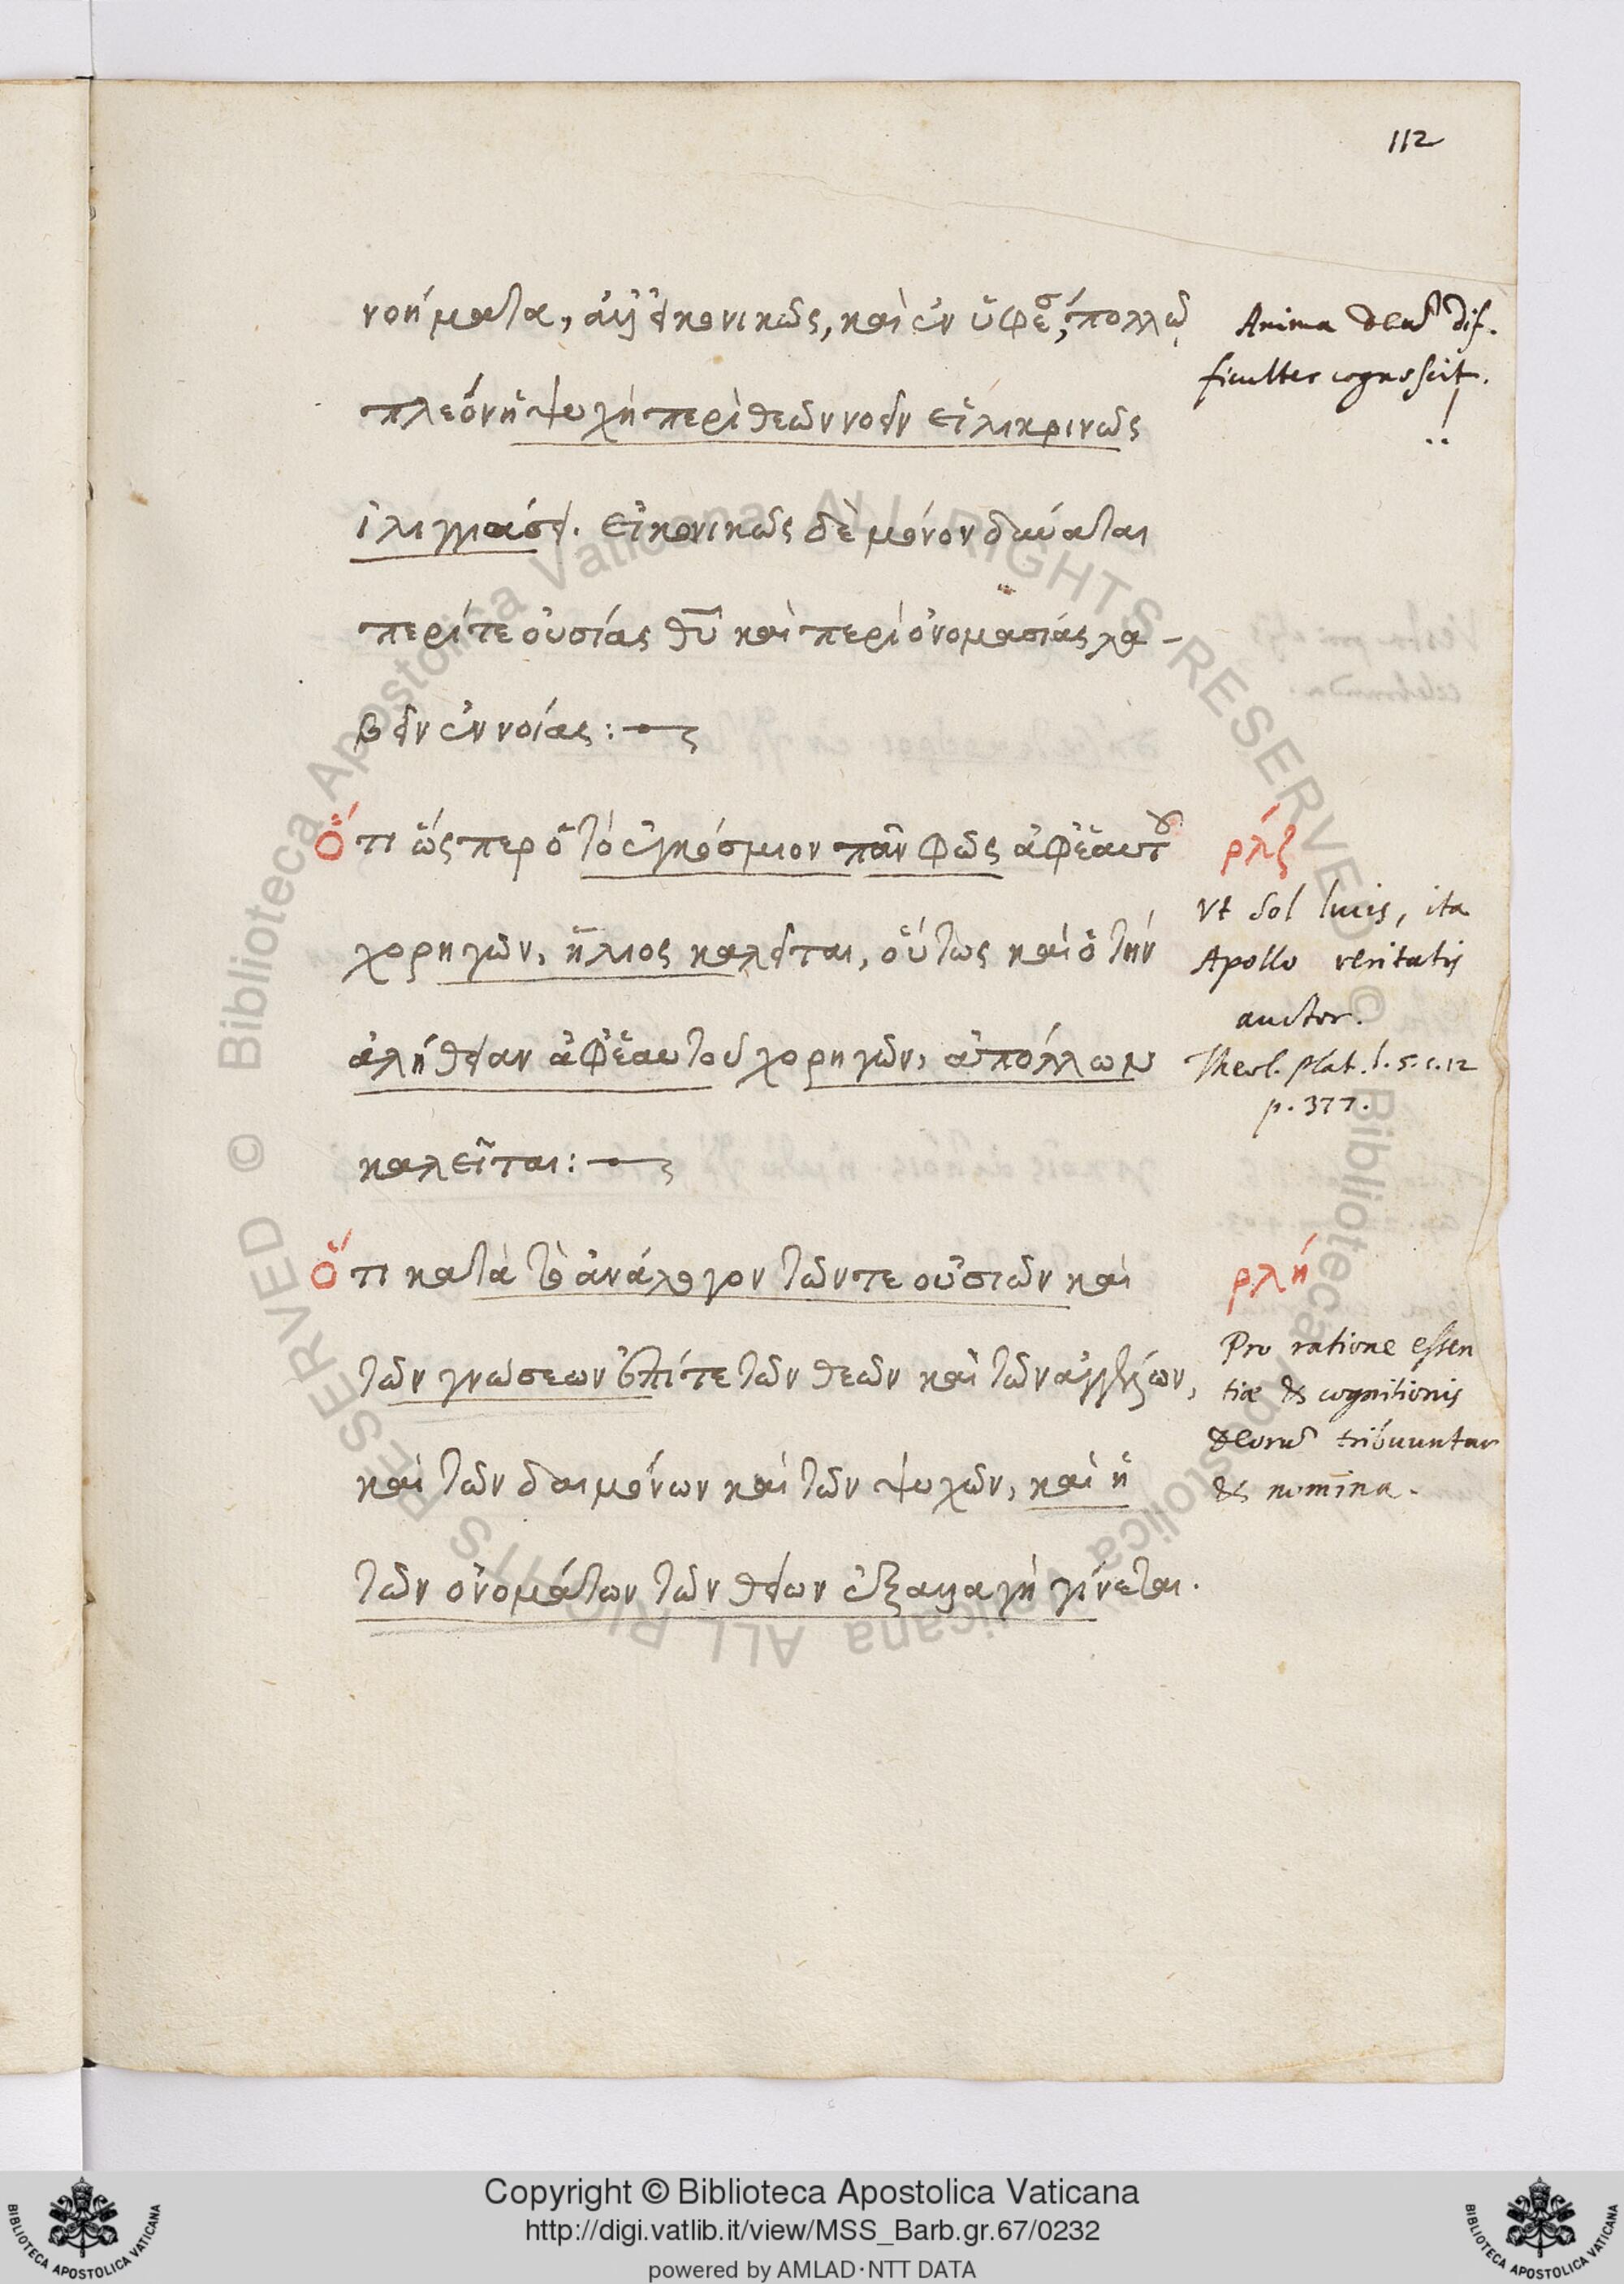 112
νοήματα, ἀλλ' εἰκονικῶς, καὶ ἐν ὑφέσει, πολλῷ
πλέον ἡ ψυχὴ περὶ θεῶν νοεῖν εἰλικρινῶς
ἰλιγγιάσει. εἰκονικῶς δὲ μόνον δύναται
περί τε οὐσίας θυ καὶ περὶ ὀνομασίας λα-
βεῖν ἐννοίας:
Anima deum dif.
ficulter cognoscit.
Ὅτι ὥςπερ ὁ τὸ ἐγκόσμιον πᾶν φῶς ἀφ' ἑαυτοῦ
χορηγῶν, ἥλιος καλεῖται, οὕτως καὶ ὁ τὴν
ἀλήθειαν ἀφ' ἑαυτοῦ χορηγῶν, ἀπόλλων
καλεῖται:
ρλζ
Vt sol lucis, ita
Apollo veritatis
auctor.
Theol. plat. l. 5. c. 12
p. 377.
Ὅτι κατὰ τὸ ἀνάλογον τῶν τε οὐσιῶν καὶ
τῶν γνώσεων ἐπί τε τῶν θεῶν καὶ τῶν ἀγγέλων,
καὶ τῶν δαιμόνων καὶ τῶν ψυχῶν, καὶ ἡ
τῶν ὀνομάτων τῶν θείων ἐξαλλαγὴ γίνεται.
ρλή
Pro ratione essen
tiæ & cognitionis
deorum tribuuntur
& nomina.
Copyright © Biblioteca Apostolica Vaticana
http://digi.vatlib.it/view/MSS_Barb.gr.67/0232
powered by AMLAD·NTT DATA
BIBLIOTECA APOSTOLICA VATICANA
BIBLIOTECA APOSTOLICA VATICANA
© Biblioteca Apostolica Vaticana ALL RIGHTS RESERVED © Biblioteca Apostolica Vaticana ALL RIGHTS RESERVED